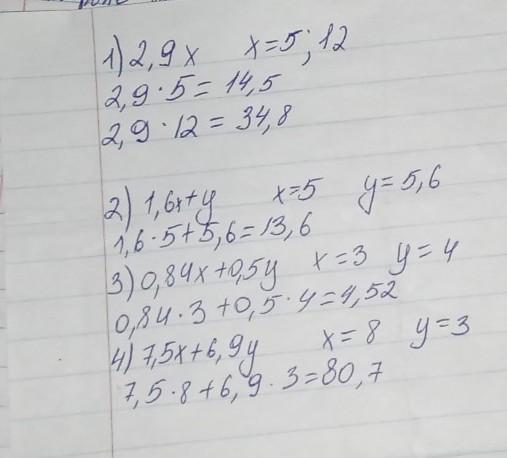 1) 2,9x x=5; 12
2,9·5=14,5
2,9·12=34,8
2) 1,6x+y x=5 y=5,6
1,6·5+5,6=13,6
3) 0,84x+0,5y x=3 y=4
0,84·3+0,5·4=4,52
4) 7,5x+6,9y x=8 y=3
7,5·8+6,9·3=80,7